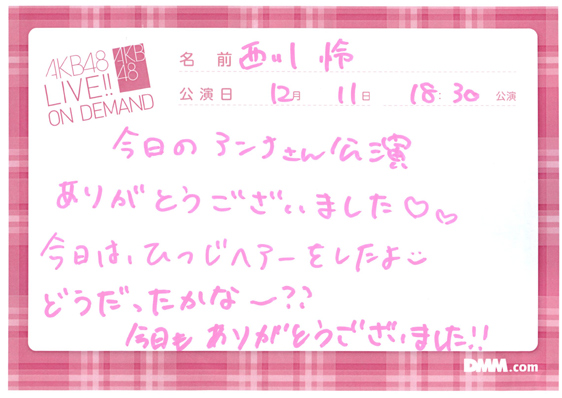 AKB48
LIVE!!
ON DEMAND
AKB
48
名前 西川怜
公演日 12月 11日 18:30 公演
今日のアンナさん公演
ありがとうございました♡♡
今日は、ひつじヘアーをしたよ
どうだったかな〜??
今日もありがとうございました!!
DMM.com